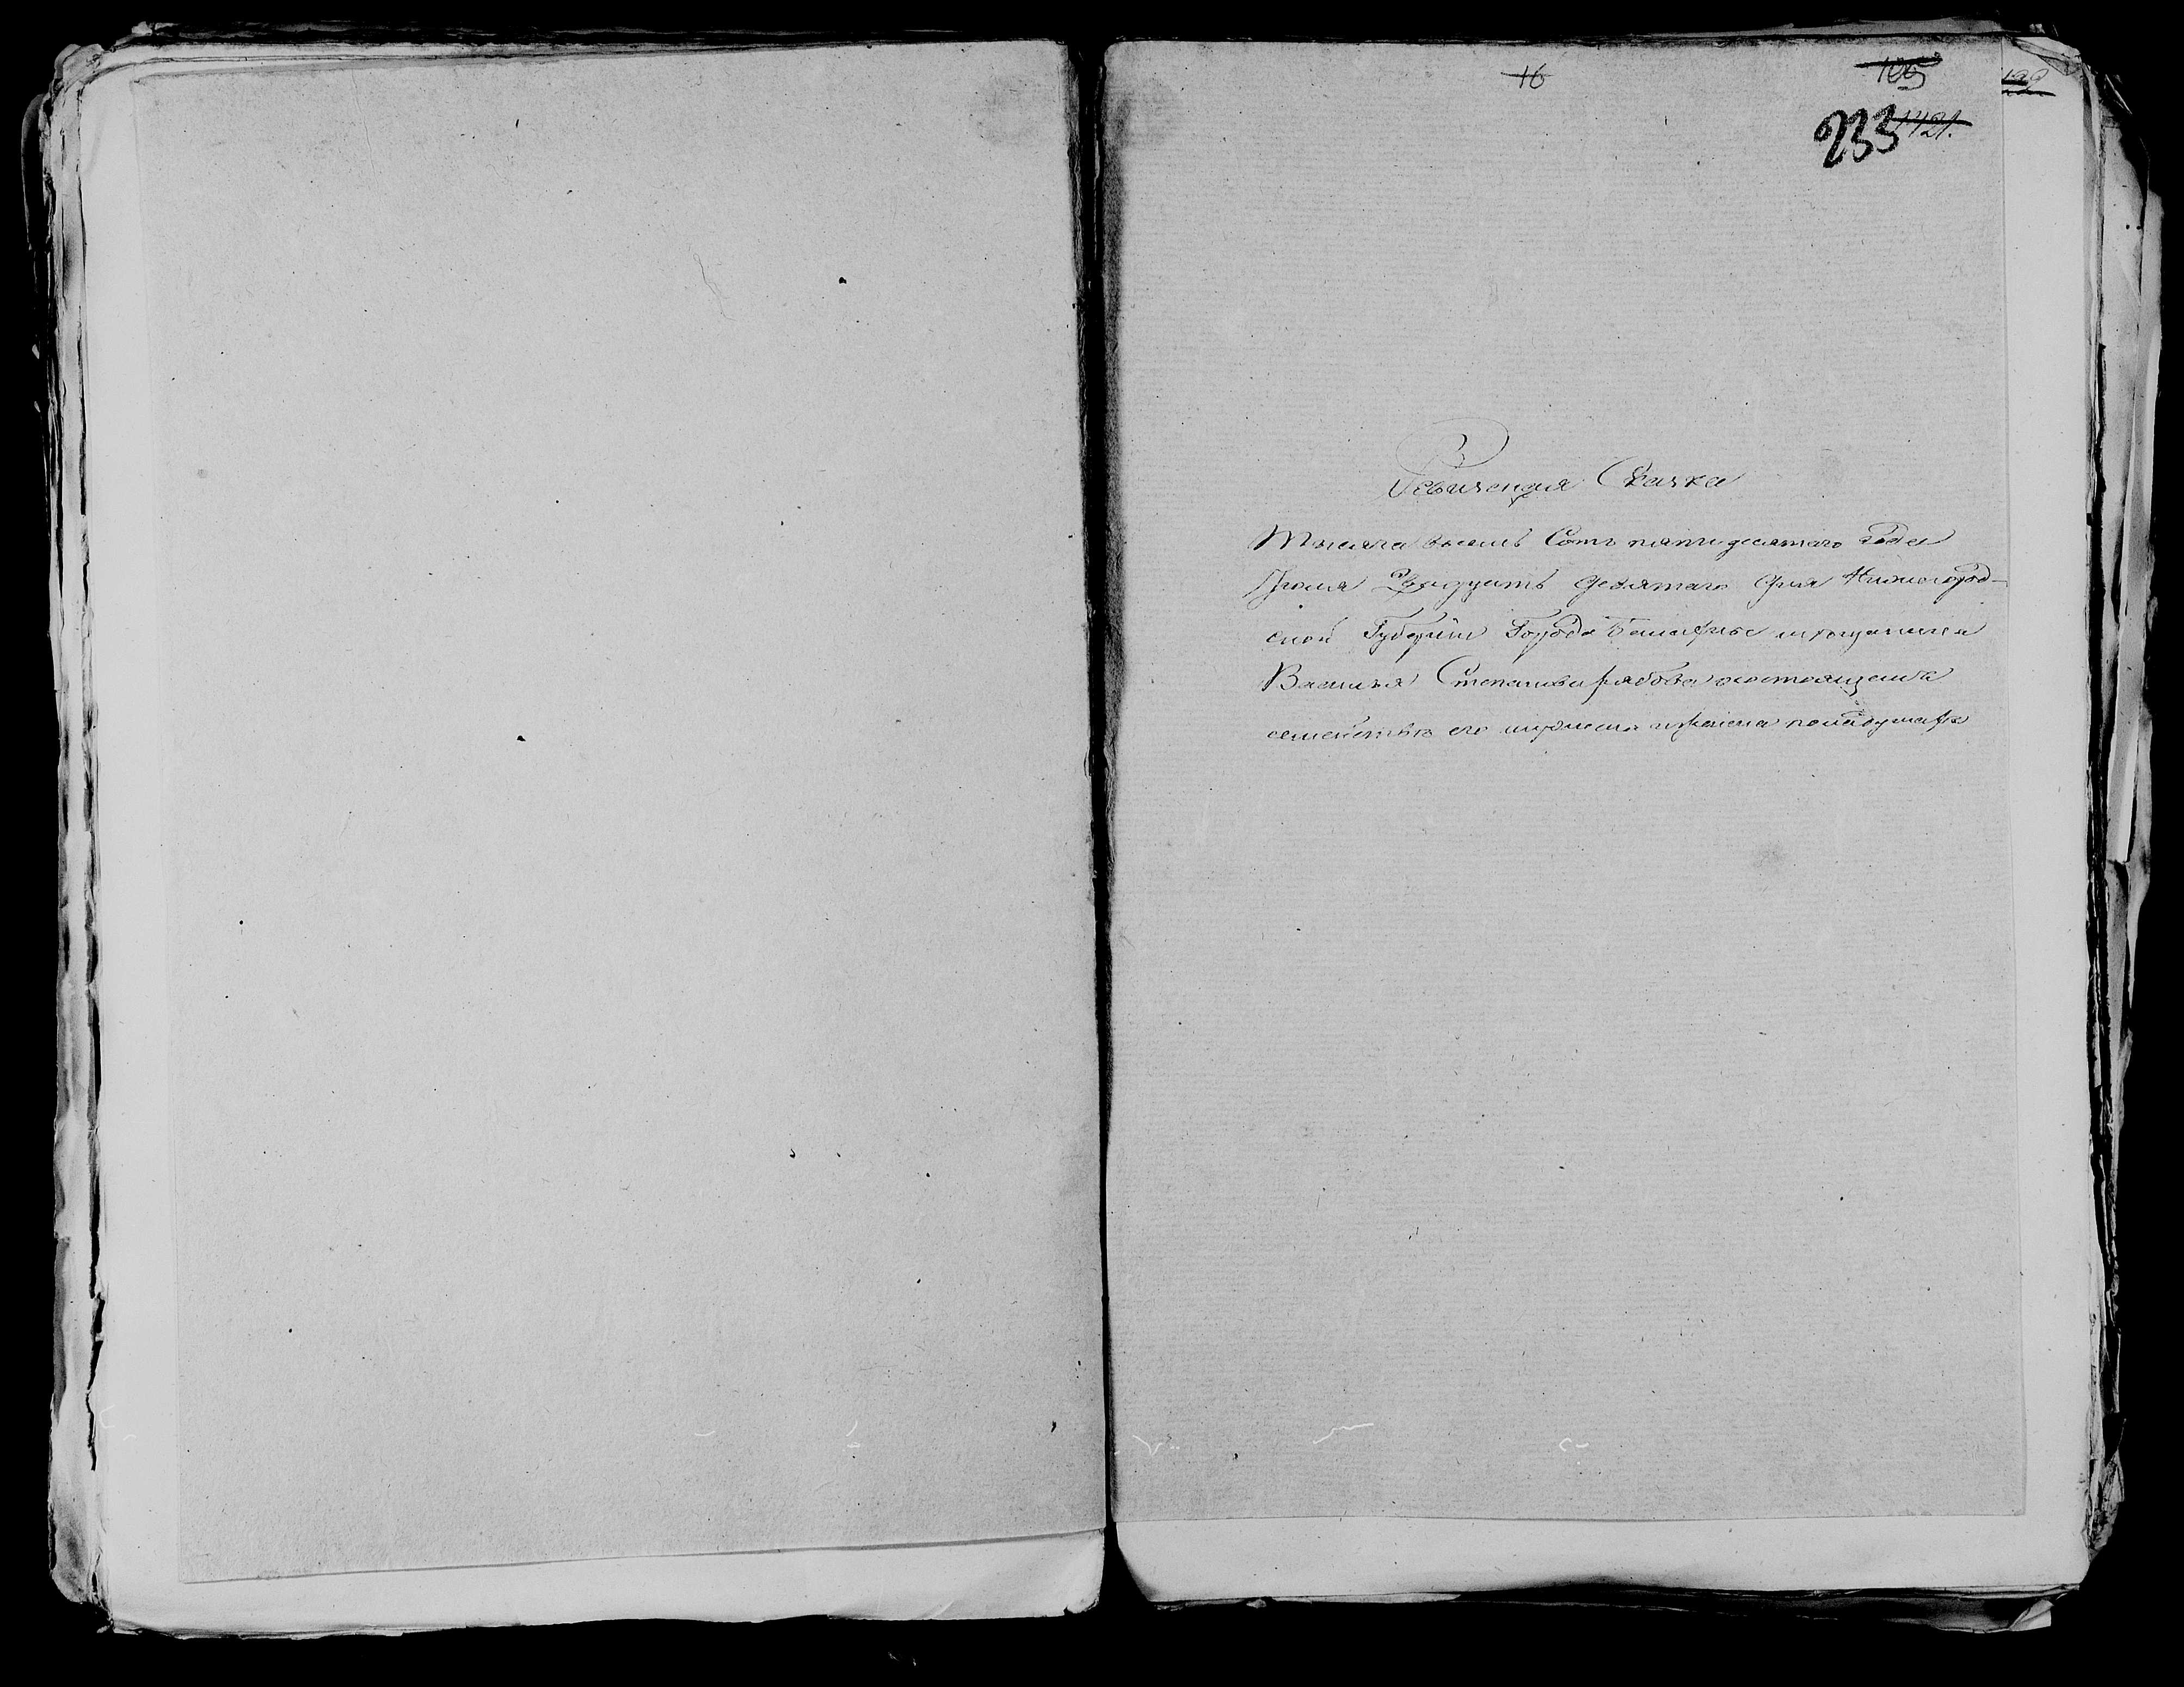 16
105
199
233 1421.
Ревизская Сказка
Тысяча восемь Сотъ пятидесятаго Года
Іюля Двадцать девятаго дня Нижегород-
ской Губерніи Города Балахны мѣщанина
Василья Степанова рябова о состоящемъ
семействѣ его мужеска и женска пола душахъ